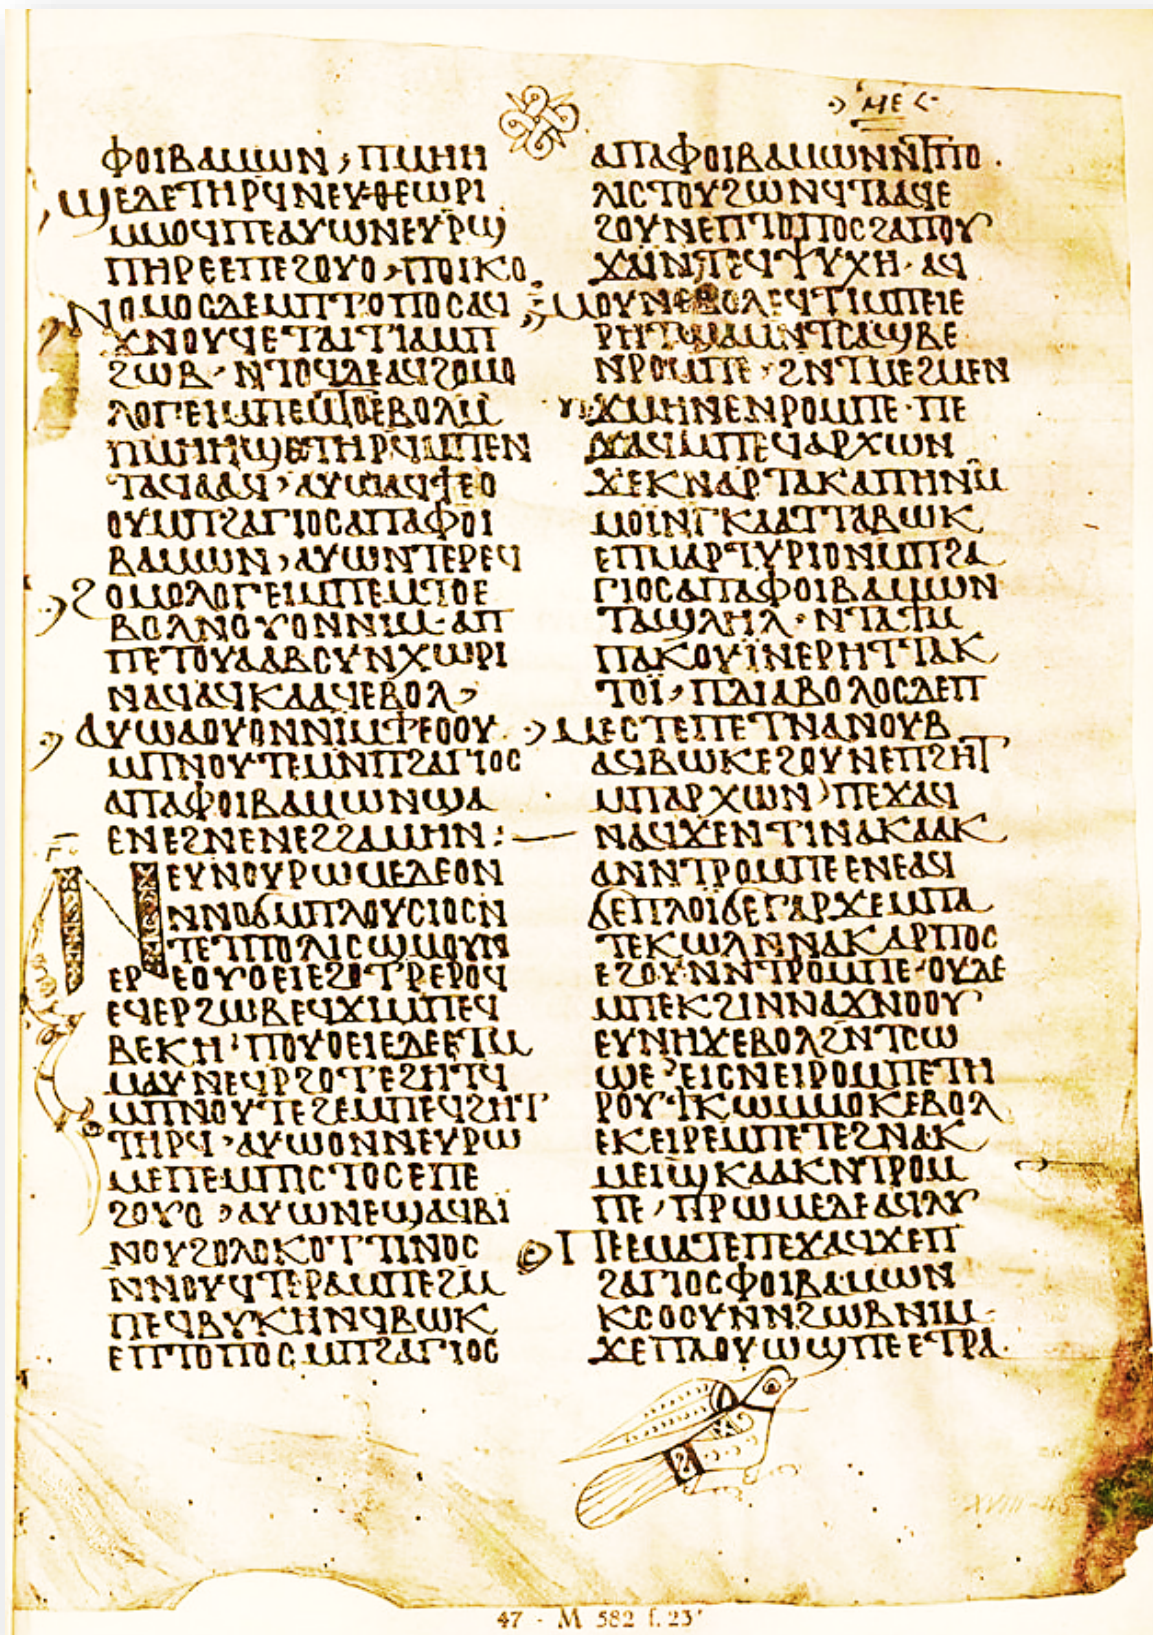 ⲙⲉ
ⲫⲟⲓⲃⲁⲙⲙⲱⲛ, ⲡⲙⲏⲏ
ϣⲉⲇⲉⲧⲏⲣϥⲛⲉⲩⲑⲉⲱⲣⲓ
ⲙⲙⲟϥⲡⲉⲁⲩⲱⲛⲉⲩⲣϣ
ⲡⲏⲣⲉⲉⲡⲉϩⲟⲩⲟ, ⲡⲟⲓⲕⲟ
ⲛⲟⲙⲟⲥⲇⲉⲙⲡⲧⲟⲡⲟⲥⲁϥ
ϫⲛⲟⲩϥⲉⲧⲁⲓⲧⲓⲁⲙⲡ
ϩⲱⲃ· ⲛⲧⲟϥⲇⲉⲁϥϩⲟⲙⲟ
ⲗⲟⲅⲉⲓⲙⲡⲉⲙⲧⲟⲉⲃⲟⲗⲙ
ⲡⲙⲏⲏϣⲉⲧⲏⲣϥⲙⲡⲉⲛ
ⲧⲁϥⲁⲁϥ, ⲁⲩⲱⲁϥϯⲉⲟ
ⲟⲩⲙⲡϩⲁⲅⲓⲟⲥⲁⲡⲁⲫⲟⲓ
ⲃⲁⲙⲱⲛ, ⲁⲩⲱⲛⲧⲉⲣⲉϥ
ϩⲟⲙⲟⲗⲟⲅⲉⲓⲙⲡⲉⲙⲧⲟⲉ
ⲃⲟⲗⲛⲟⲩⲟⲛⲛⲓⲙ· ⲁⲡ
ⲡⲉⲧⲟⲩⲁⲁⲃⲥⲩⲛⲭⲱⲣⲓ
ⲛⲁϥⲁϥⲕⲁⲁϥⲉⲃⲟⲗ,
ⲁⲩⲱⲁⲟⲩⲟⲛⲛⲓⲙϯⲉⲟⲟⲩ
ⲙⲡⲛⲟⲩⲧⲉⲙⲛⲡϩⲁⲅⲓⲟⲥ
ⲁⲡⲁⲫⲟⲓⲃⲁⲙⲱⲛϣⲁ
ⲉⲛⲉϩⲛⲉⲛⲉϩϩⲁⲙⲏⲛ:
Ⲅ
ⲛⲉⲩⲛⲟⲩⲣⲱⲙⲉⲇⲉⲟⲛ
ⲛⲛⲟϭⲙⲡⲗⲟⲩⲥⲓⲟⲥⲛ
ⲧⲉⲧⲡⲟⲗⲓⲥϣⲙⲟⲩⲛ
ⲉⲣⲉⲟⲩⲟⲉⲓⲉϩⲓⲧⲣⲉⲣⲟϥ
ⲉϥⲉⲣϩⲱⲃⲉϥϫⲓⲙⲡⲉϥ
ⲃⲉⲕⲏ· ⲡⲟⲩⲟⲉⲓⲉⲇⲉⲉⲧⲙ
ⲙⲁⲩⲛⲉϥⲣϩⲟⲧⲉϩⲏⲧϥ
ⲙⲡⲛⲟⲩⲧⲉϩⲉⲙⲡⲉϥϩⲏⲧ
ⲧⲏⲣϥ, ⲁⲩⲱⲟⲛⲛⲉⲩⲣⲱ
ⲙⲉⲡⲉⲙⲡⲓⲥⲧⲟⲥⲉⲡⲉ
ϩⲟⲩⲟ, ⲁⲩⲱⲛⲉϣⲁϥⲃⲓ
ⲛⲟⲩϩⲟⲗⲟⲕⲟⲧⲧⲓⲛⲟⲥ
ⲛⲛⲟⲩϥⲧⲉⲣⲁⲙⲡⲉϩⲙ
ⲡⲉϥⲃⲩⲕⲏⲛϥⲃⲱⲕ
ⲉⲡⲧⲟⲡⲟⲥⲙⲡϩⲁⲅⲓⲟⲥ
ⲁⲡⲁⲫⲟⲓⲃⲁⲙⲱⲛⲛⲧⲡⲟ
ⲗⲓⲥⲧⲟⲩϩⲱⲛϥⲧⲁⲁϥⲉ
ϩⲟⲩⲛⲉⲡⲧⲟⲡⲟⲥϩⲁⲡⲟⲩ
ϫⲁⲓⲛⲧⲉϥⲯⲩⲭⲏ· ⲁϥ
ⲙⲟⲩⲛⲉⲃⲟⲗⲉϥϯⲙⲡⲉⲓⲉ
ⲣⲏⲧϣⲁⲙⲛⲧⲥⲁϣⲃⲉ
ⲛⲣⲟⲙⲡⲉ· ϩⲛⲧⲙⲉϩⲙⲉⲛ
ϫⲙⲏⲛⲉⲛⲣⲟⲙⲡⲉ· ⲡⲉ
ϫⲁϥⲙⲡⲉϥⲁⲣⲭⲱⲛ
ϫⲉⲕⲛⲁⲣⲧⲁⲕⲁⲡⲏⲛⲙ
ⲙⲟⲓⲛⲅⲕⲁⲁⲧⲧⲁⲃⲱⲕ
ⲉⲡⲙⲁⲣⲧⲩⲣⲓⲟⲛⲙⲡϩⲁ
ⲅⲓⲟⲥⲁⲡⲁⲫⲟⲓⲃⲁⲙⲙⲱⲛ
ⲧⲁϣⲗⲏⲗ· ⲛⲧⲁϯⲙ
ⲡⲁⲕⲟⲩⲓⲛⲉⲣⲏⲧⲧⲁⲕ
ⲧⲟⲓ, ⲡⲇⲓⲁⲃⲟⲗⲟⲥⲇⲉⲡ
ⲙⲉⲥⲧⲉⲡⲉⲧⲛⲁⲛⲟⲩⲃ
ⲁϥⲃⲱⲕⲉϩⲟⲩⲛⲉⲡϩⲏⲧ
ⲙⲡⲁⲣⲭⲱⲛ, ⲡⲉϫⲁϥ
ⲛⲁϥϫⲉⲛϯⲛⲁⲕⲁⲁⲕ
ⲁⲛⲛⲧⲣⲟⲙⲡⲉⲉⲛⲉⲁϥ
ϭⲉⲡⲗⲟⲓϭⲉⲅⲁⲣϫⲉⲙⲡⲁ
ⲧⲉⲕⲱⲗⲛⲛⲁⲕⲁⲣⲡⲟⲥ
ⲉϩⲟⲩⲛⲛⲧⲣⲟⲙⲡⲉ· ⲟⲩⲇⲉ
ⲙⲡⲉⲕϩⲓⲛⲛⲁϫⲛⲟⲟⲩ
ⲉⲩⲛⲏϫⲉⲃⲟⲗϩⲛⲧⲥⲱ
ϣⲉ· ⲉⲓⲥⲛⲉⲓⲣⲟⲙⲡⲉⲧⲏ
ⲣⲟⲩϯⲕⲱⲙⲙⲟⲕⲉⲃⲟⲗ
ⲉⲕⲉⲓⲣⲉⲙⲡⲉⲧⲉϩⲛⲁⲕ
ⲙⲉⲓϣⲕⲁⲁⲕⲛⲧⲣⲟⲙ
ⲡⲉ, ⲡⲣⲱⲙⲉⲇⲉⲁϥⲗⲩ
ⲡⲉⲉⲙⲁⲧⲉⲡⲉϫⲁϥϫⲉⲡ
ϩⲁⲅⲓⲟⲥⲫⲟⲓⲃⲁⲙⲱⲛ
ⲕⲥⲟⲟⲩⲛⲛϩⲱⲃⲛⲓⲙ·
ϫⲉⲡⲁⲟⲩⲱϣⲡⲉⲉⲧⲣⲁ
47 - M 582 f. 23ʳ